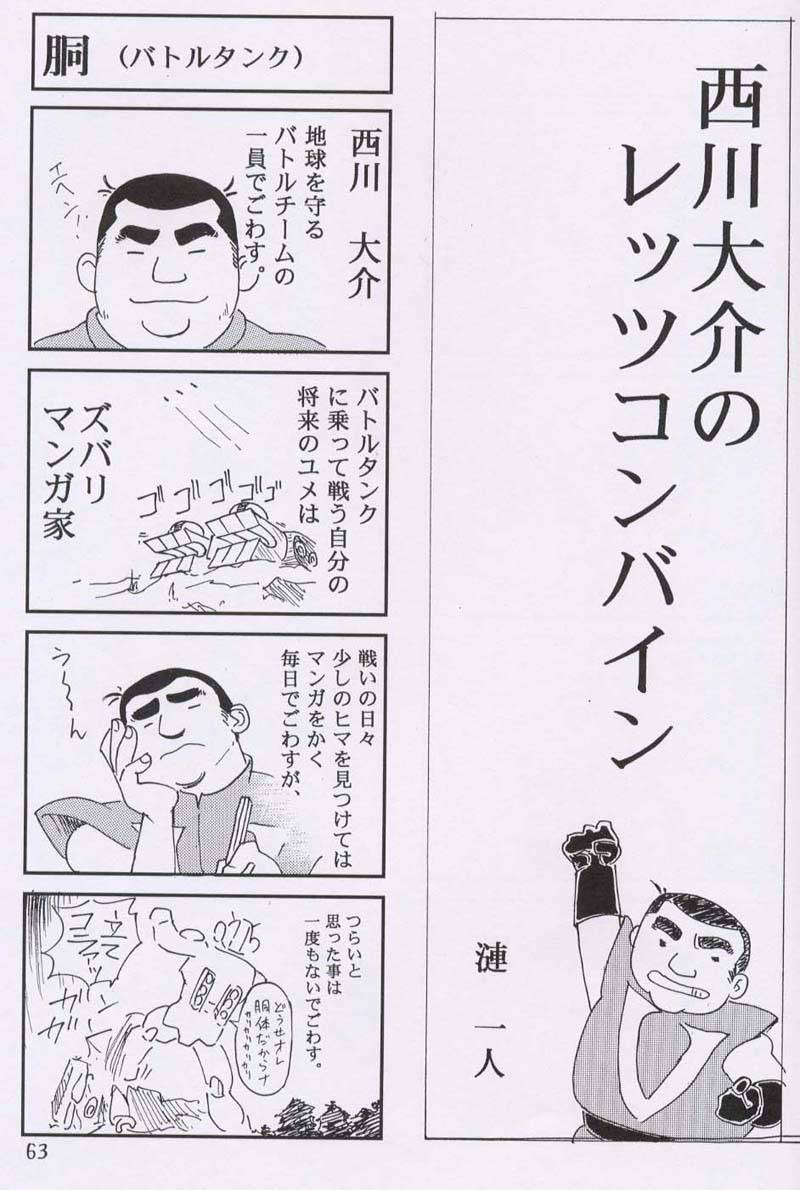 西川大介の
レッツコンバイン
漣 一人
胴（バトルタンク）
西川 大介
地球を守る
バトルチームの
一員でごわす。
エヘン!!
バトルタンク
に乗って戦う自分の
将来のユメは
ズバリ
マンガ家
ゴゴゴゴゴ
戦いの日々
少しのヒマを見つけては
マンガをかく
毎日でごわすが、
う〜〜ん
つらいと
思った事は
一度もないでごわす。
どうせオレ
胴体だからナ
カリカリカリ
カリカリカリ
ガン
ガン
63